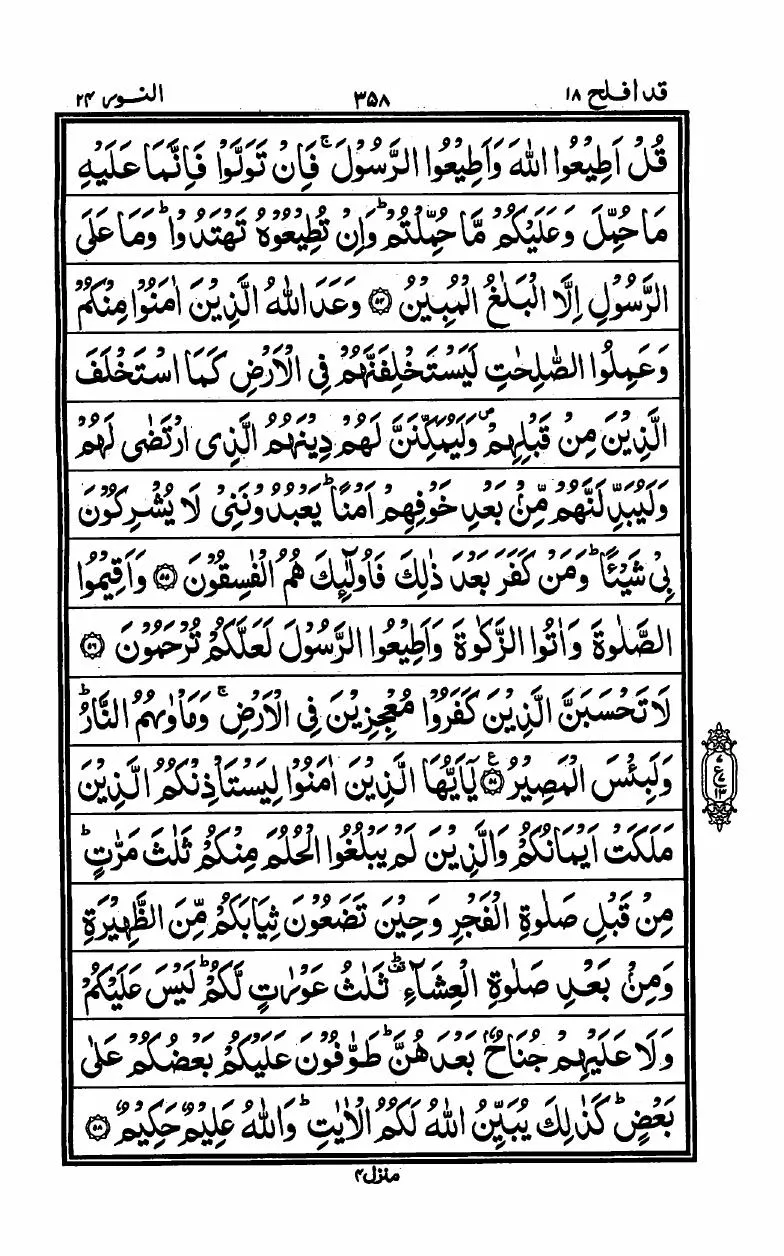 قد افلح ١٨
٣٥٨
النور ٢٤
قُلْ اَطِيْعُوا اللّٰهَ وَاَطِيْعُوا الرَّسُوْلَ ۚ فَاِنْ تَوَلَّوْا فَاِنَّمَا عَلَيْهِ
مَا حُمِّلَ وَعَلَيْكُمْ مَّا حُمِّلْتُمْ ؕ وَاِنْ تُطِيْعُوْهُ تَهْتَدُوْا ؕ وَمَا عَلَى
الرَّسُوْلِ اِلَّا الْبَلٰغُ الْمُبِيْنُ ۝۵۴ وَعَدَ اللّٰهُ الَّذِيْنَ اٰمَنُوْا مِنْكُمْ
وَعَمِلُوا الصّٰلِحٰتِ لَيَسْتَخْلِفَنَّهُمْ فِى الْاَرْضِ كَمَا اسْتَخْلَفَ
الَّذِيْنَ مِنْ قَبْلِهِمْ ۪ وَلَيُمَكِّنَنَّ لَهُمْ دِيْنَهُمُ الَّذِى ارْتَضٰى لَهُمْ
وَلَيُبَدِّلَنَّهُمْ مِّنْۢ بَعْدِ خَوْفِهِمْ اَمْنًا ؕ يَعْبُدُوْنَنِىْ لَا يُشْرِكُوْنَ
بِىْ شَيْـًٔا ؕ وَمَنْ كَفَرَ بَعْدَ ذٰلِكَ فَاُولٰٓئِكَ هُمُ الْفٰسِقُوْنَ ۝۵۵ وَاَقِيْمُوا
الصَّلٰوةَ وَاٰتُوا الزَّكٰوةَ وَاَطِيْعُوا الرَّسُوْلَ لَعَلَّكُمْ تُرْحَمُوْنَ ۝۵۶
لَا تَحْسَبَنَّ الَّذِيْنَ كَفَرُوْا مُعْجِزِيْنَ فِى الْاَرْضِ ۚ وَمَاْوٰىهُمُ النَّارُ ؕ
وَلَبِئْسَ الْمَصِيْرُ ۝۵۷ يٰۤاَيُّهَا الَّذِيْنَ اٰمَنُوْا لِيَسْتَاْذِنْكُمُ الَّذِيْنَ
مَلَكَتْ اَيْمَانُكُمْ وَالَّذِيْنَ لَمْ يَبْلُغُوا الْحُلُمَ مِنْكُمْ ثَلٰثَ مَرّٰتٍ ؕ
مِنْ قَبْلِ صَلٰوةِ الْفَجْرِ وَحِيْنَ تَضَعُوْنَ ثِيَابَكُمْ مِّنَ الظَّهِيْرَةِ
وَمِنْۢ بَعْدِ صَلٰوةِ الْعِشَآءِ ؕ ثَلٰثُ عَوْرٰتٍ لَّكُمْ ؕ لَيْسَ عَلَيْكُمْ
وَلَا عَلَيْهِمْ جُنَاحٌۢ بَعْدَهُنَّ ؕ طَوّٰفُوْنَ عَلَيْكُمْ بَعْضُكُمْ عَلٰى
بَعْضٍ ؕ كَذٰلِكَ يُبَيِّنُ اللّٰهُ لَكُمُ الْاٰيٰتِ ؕ وَاللّٰهُ عَلِيْمٌ حَكِيْمٌ ۝۵۸
منزل ۴